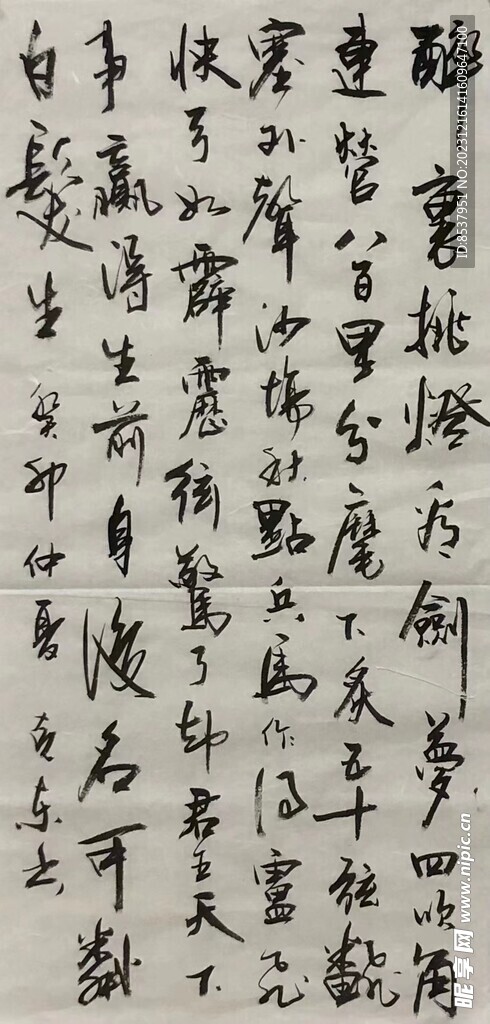 醉裏挑燈看劍夢回吹角
連營八百里分麾下炙五十弦飜
塞外聲沙場秋點兵馬作的盧飛
快弓如霹靂弦驚了却君王天下
事贏得生前身後名可憐
白髮生 癸卯仲夏克東書
ID:8537951 NO:20231216141609647100
昵享网 www.nipic.cn